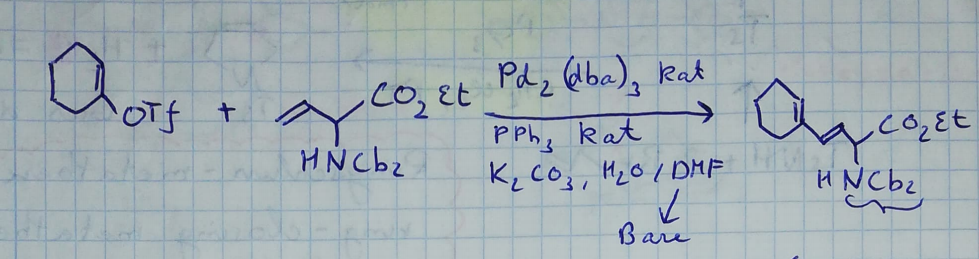 OTf + CO₂Et
HNCbz
Pd₂(dba)₃ kat
PPh₃ kat
K₂CO₃, H₂O/DMF
Base
CO₂Et
HNCbz